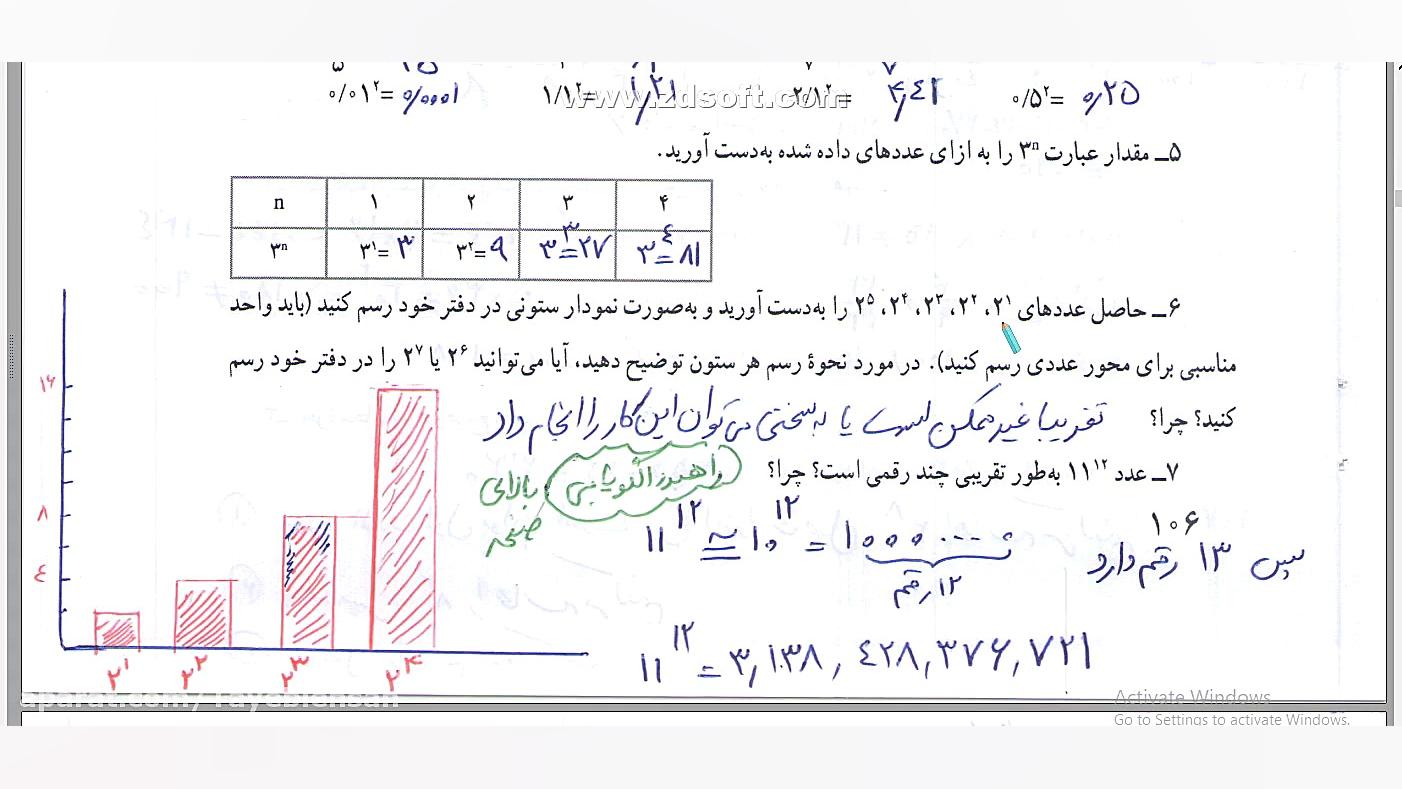 ۰/۵² = ۰٫۲۵ ۲/۱² = ۴٫۴۱ ۱/۱² = ۱٫۲۱ ۰/۰۱² = ۰٫۰۰۰۱
www.zdsoft.com
۵ــ مقدار عبارت ۳ⁿ را به ازای عددهای داده شده به‌دست آورید.
n ۱ ۲ ۳ ۴
۳ⁿ ۳¹= ۳ ۳²= ۹ ۳³=۲۷ ۳⁴=۸۱
۶ــ حاصل عددهای ۲¹، ۲²، ۲³، ۲⁴، ۲⁵ را به‌دست آورید و به‌صورت نمودار ستونی در دفتر خود رسم کنید (باید واحد
مناسبی برای محور عددی رسم کنید). در مورد نحوهٔ رسم هر ستون توضیح دهید، آیا می‌توانید ۲⁶ یا ۲⁷ را در دفتر خود رسم
کنید؟ چرا؟ تقریبا غیر ممکن است یا به سختی می توان این کار را انجام داد
۷ــ عدد ۱۱¹² به‌طور تقریبی چند رقمی است؟ چرا؟ راهبرد الگویابی
صفحه
۱۱¹² ≃ ۱۰¹² = ۱۰۰۰...۰
۱۲ رقم
۱۰۶
پس ۱۳ رقم دارد
۱۱¹² = ۳,۱۳۸,۴۲۸,۳۷۶,۷۲۱
۱۶
۸
۴
۲¹ ۲² ۲³ ۲⁴
aparat.com/rayebiensan
Activate Windows
Go to Settings to activate Windows.